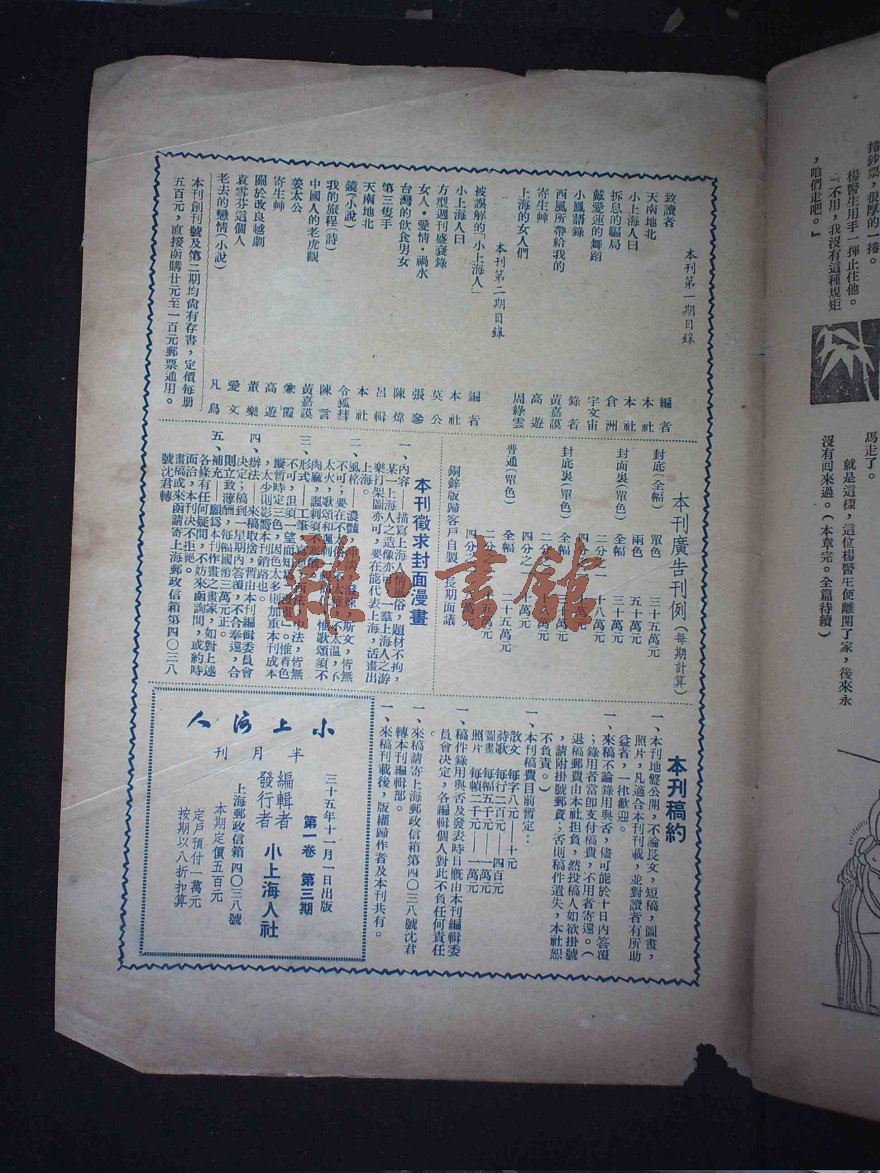 本刊第一期目錄
致讀者 編者
天南地北 本社
小上海人曰 本社
拆息的騙局 倉洲
戴愛蓮的舞蹈 宇文宙
小鳳語錄 錄者
西風所帶給我的 黃嘉謨
寄生艸 高遊
上海的女人們 周綠雲
本刊第二期目錄
被誤解的「小上海人」 編者
小上海人曰 本社
方型週刊盛衰錄 英公
女人・愛情・禍水 張參
台灣的飲食男女 陳煒
第三隻手 呂輯
天南地北 本社
鏡(小說) 令狐彗
我的旅程(詩) 陳言
中國人的老虎觀 黃嘉謨
姜太公 兼霞
寄生艸 高遊
關於改良越劇 董樂
袁雪芬這個人 愛文
老去的戀情(小說) 凡鳥
本刊創刊號及第二期均尙有存書,定價每册
五百元,直接函購廿元至一百元郵票通用。
本刊廣告刊例(每期計算)
封底(全幅) 單色 三十五萬元
兩色 五十萬元
封面裏(單色) 全幅 三十萬元
二分之一 十八萬元
四分之一
封底裏(單色) 全幅
二分之
四分之一
普通(單色) 全幅 二十五萬元
二分
四分
銅鋅版歸客戶自製 長期面議
本刊徵求封面漫畫
一、內容——描寫上海人情風俗,題材不拘,
某一上海人之造像亦可,一羣上海人之游
樂打架圖亦可,要在能代表上海,活畫出
上海。
二、風格——濃豔
斯文,皆無
不可;要在不
不太溫,不
太火,歌頌和諷刺
惟歌頌須不
肉麻,諷刺須不
三、形式——工筆
法,皆無
不可,但須一望而知
。惟着色
擬暫時定三色,因色太多則加重本刊成本
,太少則影響本刊銷路也。
四、辦法——來稿取捨,暫由本刊編輯委員會
決定,稿到一星期內答覆,不合奉還,合
則立致薄酬,每幅國幣三萬元正。
五、補充——願爲本刊作畫之畫家,如對上述
各條有任何疑問,不妨來函詢問,或約時
面洽,本刊決不拒絕。
畫稿或來函請寄上海郵政信箱第四〇三八
號沈君轉
本刊稿約
一、本刊地盤公開,不論長文,短稿,圖畫,
照片,凡適合本刊刊載,並對讀者有所助
益者,一律歡迎。
一、來稿不論錄用與否,儘可能於十日內答覆
;錄用者當卽支付稿費,不用者寄還。(
退稿郵費由本社担負,然投稿人如欲掛號
,請附掛號郵資;否則稿件遺失,本社恕
不負責。)
一、本刊稿費目前暫定:
散文 每字八元——十元
詩歌 每行二百元——四百元
圖畫 每幅五千元——一萬元
照片 每幀二千元——一萬元
一、稿件錄用與否及發表時日槪由本刊編輯委
員會決定,各編輯個人對此不負任何責任
一、來稿請寄上海郵政信箱第四〇三八號沈君
轉本刊編輯部。
一、來稿刊載後,版權歸作者及本刊共有。
小上海人
半月刊
三十五年十一月一日出版
第一卷 第三期
編輯者
發行者 小上海人社
上海郵政信箱四〇三八號
本期定價五百元
定戶預付一萬元
按期以八折扣算
捲鈔票,很厚的一捲。
楊醫生用手一揮止住他。
『不用,我沒有這種規矩
,咱們走吧。』
馬走了。
就是這樣,這位楊醫生便離開了家,後來永
沒有囘來過。(本章完。全篇待續)
雜·書館